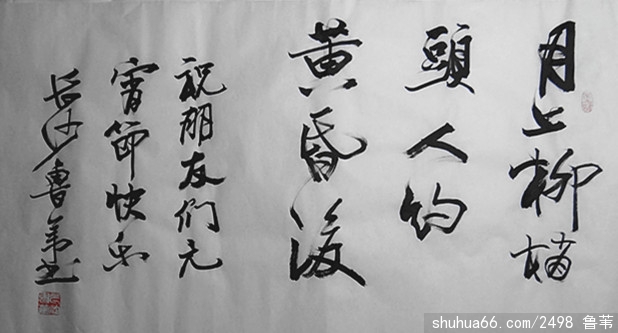 月上柳梢
頭人约
黄昏後
祝朋友们元
宵節快乐
长沙魯苇书
shuhua66.com/2498 鲁苇